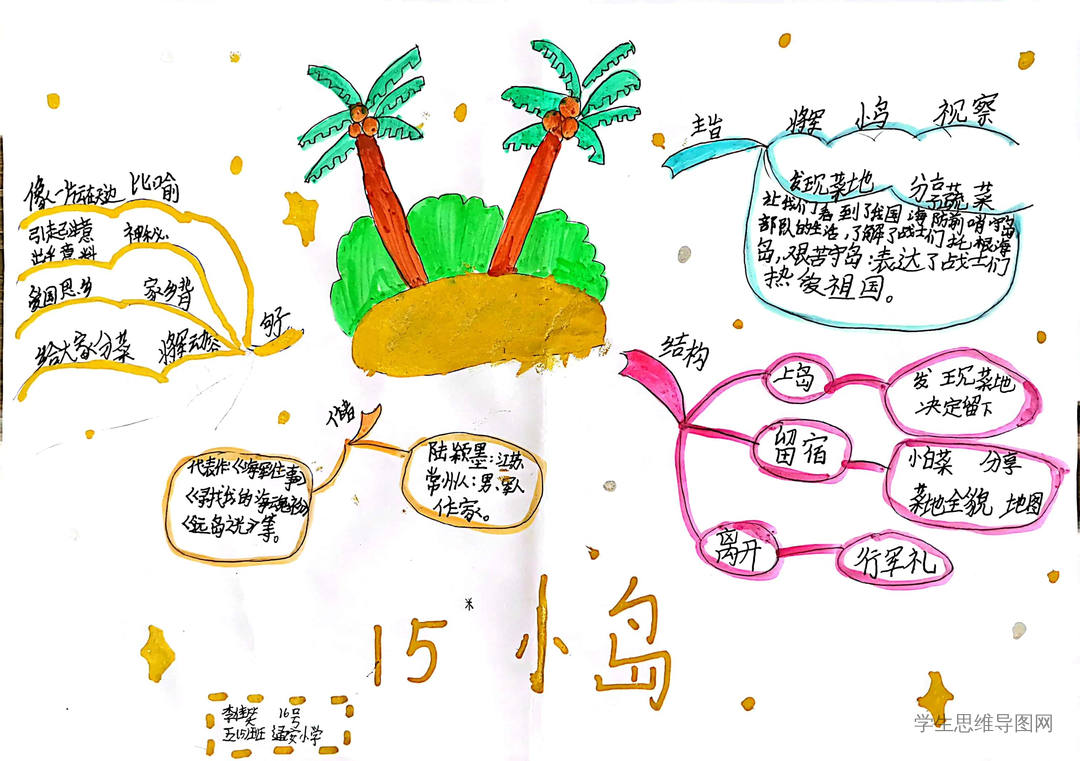 主旨
将军 小岛 视察
发现菜地 分享蔬菜
让我们看到了我国海防前哨守岛
部队的生活,了解了战士们扎根海
岛,艰苦守岛:表达了战士们
热爱祖国。
像一片云在天边 比喻
引起注意 神秘
出乎意料
爱国思乡 家乡背
给大家分菜 将军动容
句子
结构
上岛
发现菜地
决定留下
留宿
小白菜 分享
菜地全貌 地图
离开
行军礼
作者
代表作《海军往事》
《寻找我的海魂衫》
《远岛之光》等。
陆颖墨:江苏
常州人:男、军人
作家。
15 小岛
16号
五(5)班 通安小学
学生思维导图网